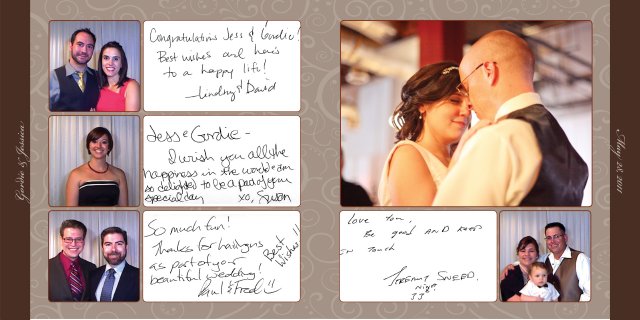 Gordie & Jessica
Congratulations Jess & Gordie!
Best wishes and here's
to a happy life!
-Lindsay & David
Jess & Gordie -
I wish you all the
happiness in the world - am
so delighted to be a part of your
special day xo,
So much fun!
Thanks for having us
as part of your
beautiful wedding!
Paul & Fred
Best
Wishes!!
Love You,
Be good AND KEEP
IN TOUCH
SNEED.